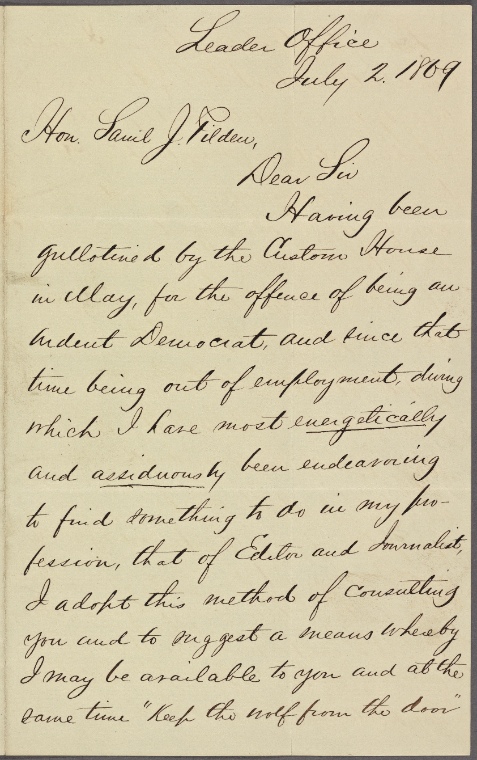 Leader Office
July 2. 1869
Hon. Saml J. Tilden,
Dear Sir
Having been
gullotined by the Custom House
in May, for the offence of being an
ardent Democrat, and since that
time being out of employment, during
which I have most energetically
and assiduously been endeavoring
to find something to do in my pro-
fession, that of Editor and Journalist,
I adopt this method of consulting
you and to suggest a means whereby
I may be available to you and at the
same time "Keep the wolf from the door"